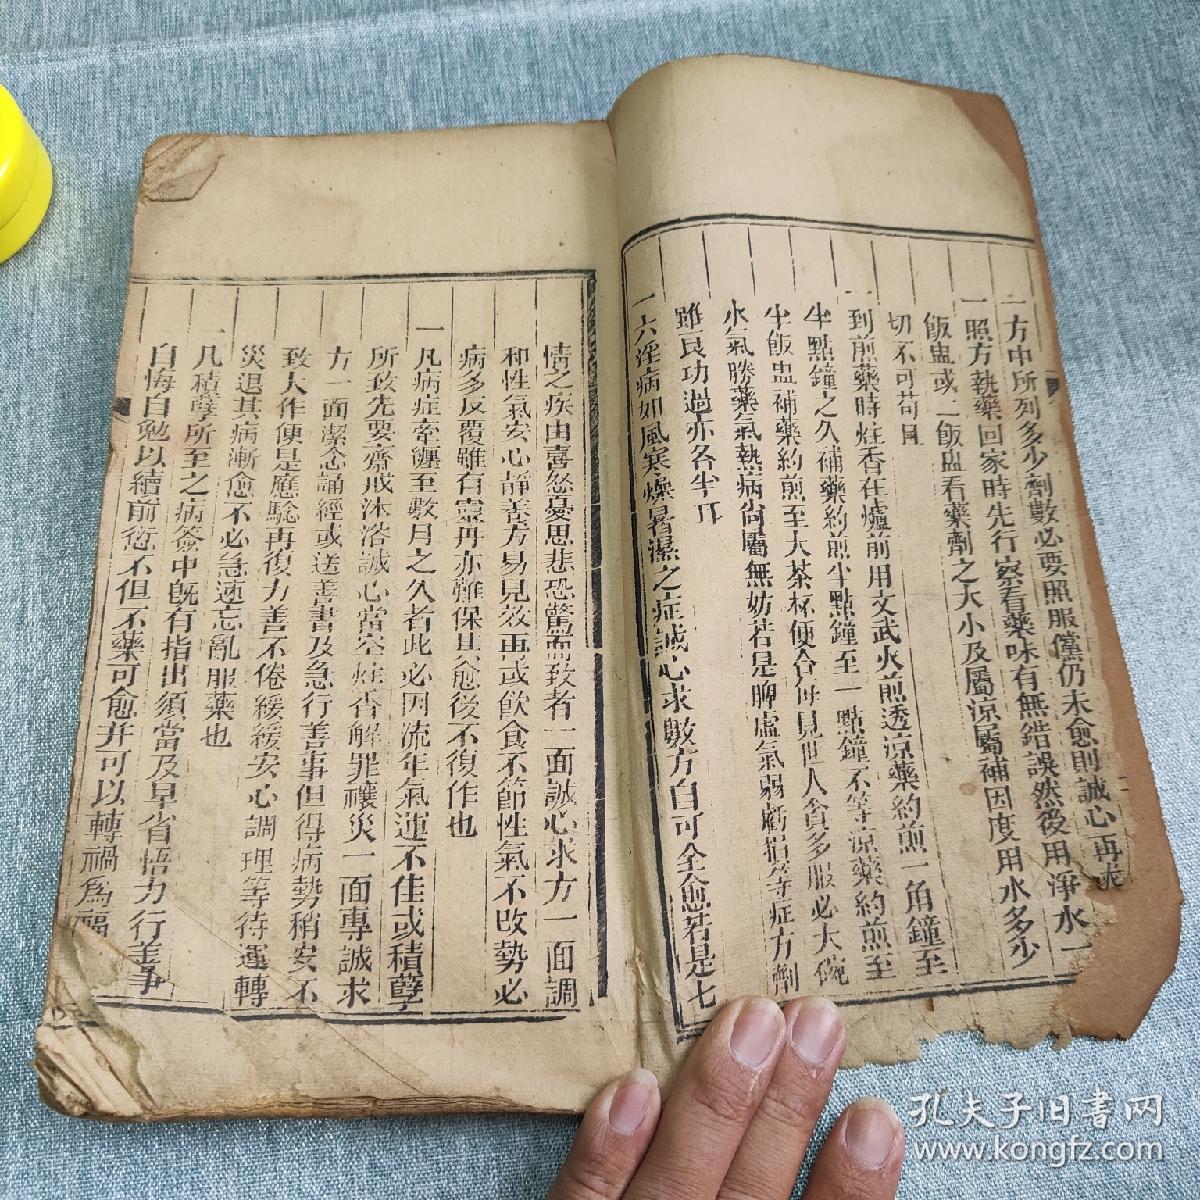 一方中所列多少劑數必要照服僅仍未愈則誠心再求
一照方執藥回家時先行察看藥味有無錯誤然後用淨水一
飯盅或二飯盅看藥劑之大小及屬涼屬補因度用水多少
切不可苟且
一到前藥時炷香在爐前用文武火煎透涼藥約煎一角鐘至
半點鐘之久補藥約煎半點鐘至一點鐘不等涼藥約煎至
半飯盅補藥約煎至大茶杯便合每見世人貪多服必大碗
水氣勝藥氣熱病尚屬無妨若是脾虛氣弱虧損等症方劑
雖良功過亦各半耳
一六淫病如風寒燥暑濕之症誠心求數方自可全愈若是七
情之疾由喜怒憂思悲恐驚而致者一面誠心求方一面調
和性氣安心靜養方易見效再或飲食不節性氣不改勢必
病多反覆雖有靈丹亦難保其愈後不復作也
一凡病症牽纏至數月之久者此必因流年氣運不佳或積孽
所致先要齋戒沐浴誠心當空炷香解罪禳災一面專誠求
方一面潔念誦經或送善書及急行善事但得病勢稍安不
致大作便是應驗再復力善不倦緩緩安心調理等待運轉
災退其病漸愈不必急速忘亂服藥也
一凡積孽所至之病簽中既有指出須當及早省悟力行善事
自悔自勉以續前愆不但不藥可愈并可以轉禍為福
孔夫子旧书网
www.kongfz.com